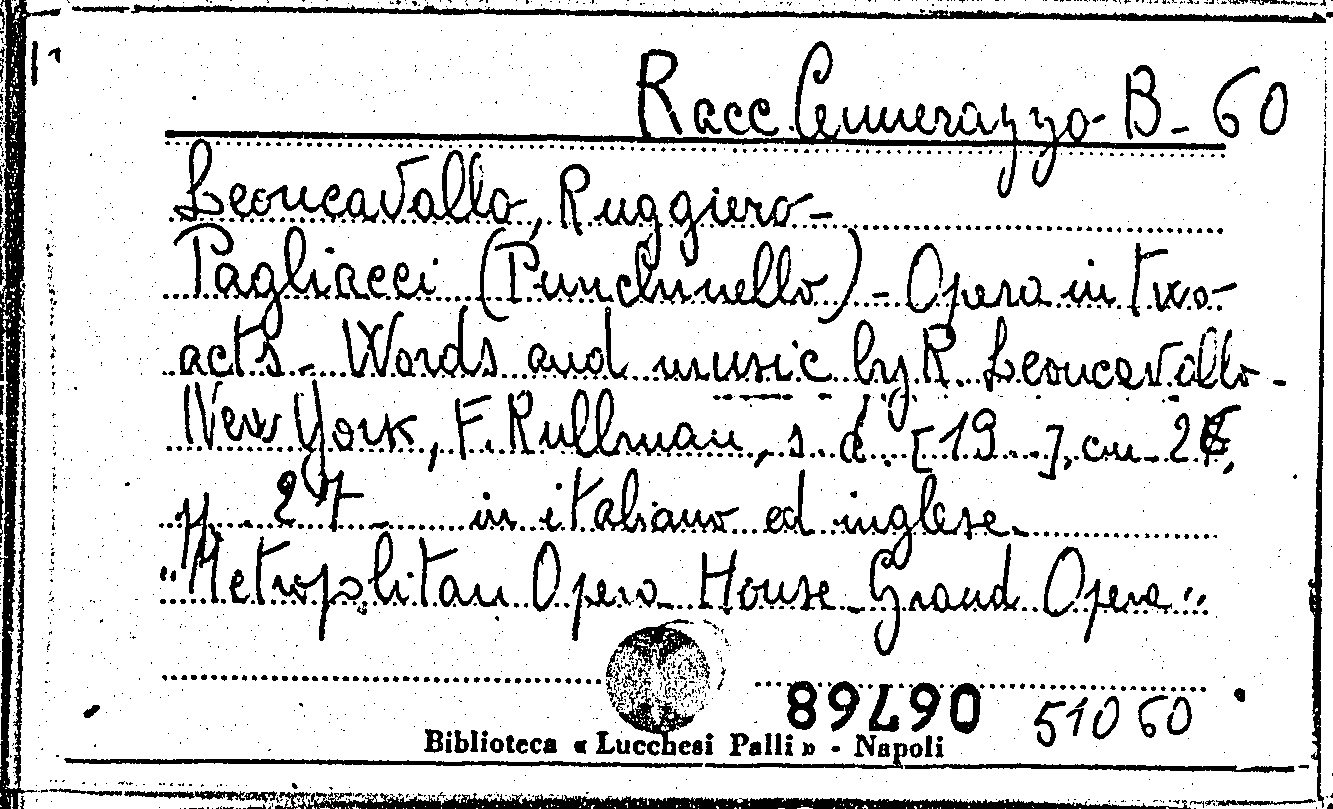 Racc. Cennerazzo - B - 60
Leoncavallo, Ruggiero -
Pagliacci (Punchinello) - Opera in two
acts - Words and music by R. Leoncavallo -
New York, F. Rullman, s. d. [19..], cm
pp. 27 - in italiano ed inglese -
"Metropolitan Opera House - Grand Opera"
06768 51060
Biblioteca « Lucchesi Palli » - Napoli